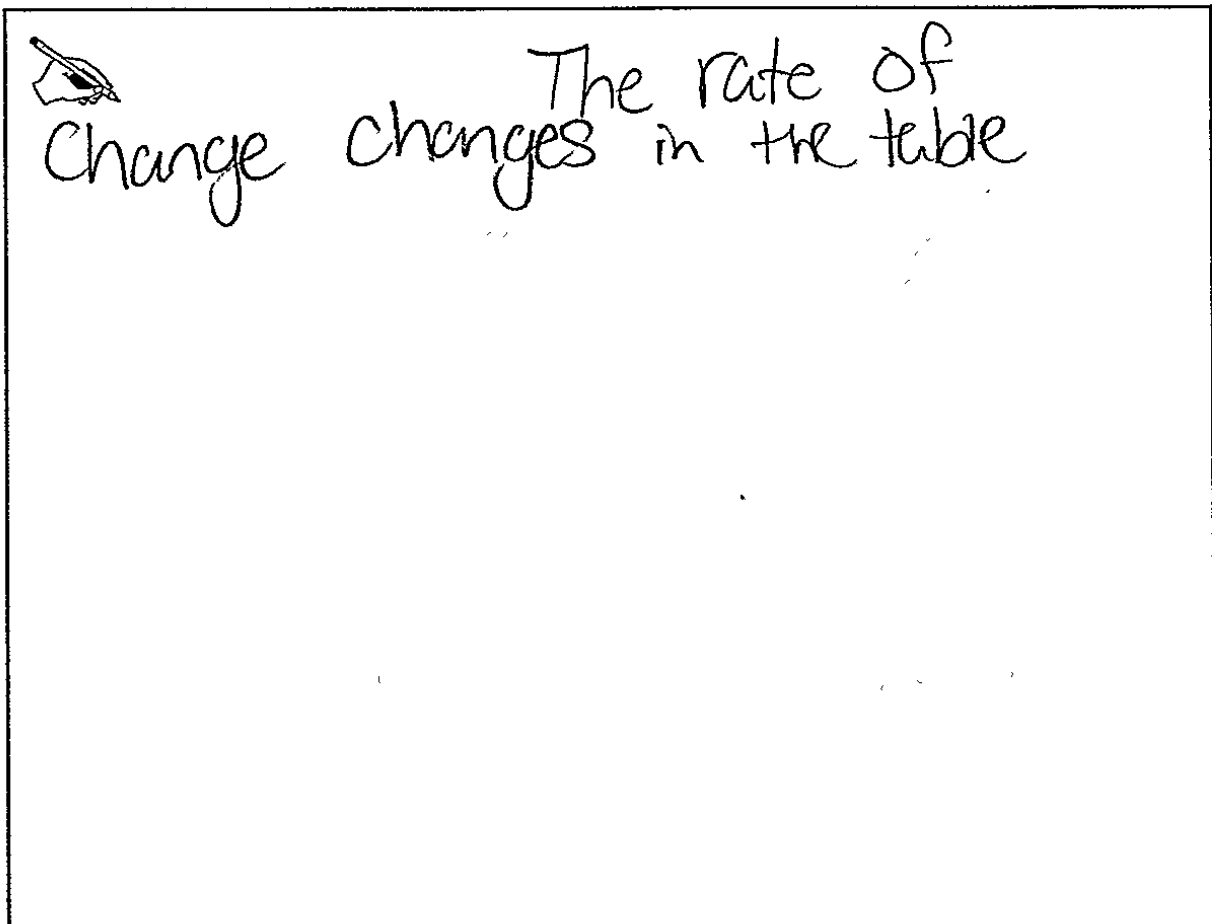 The rate of
Change changes in the table